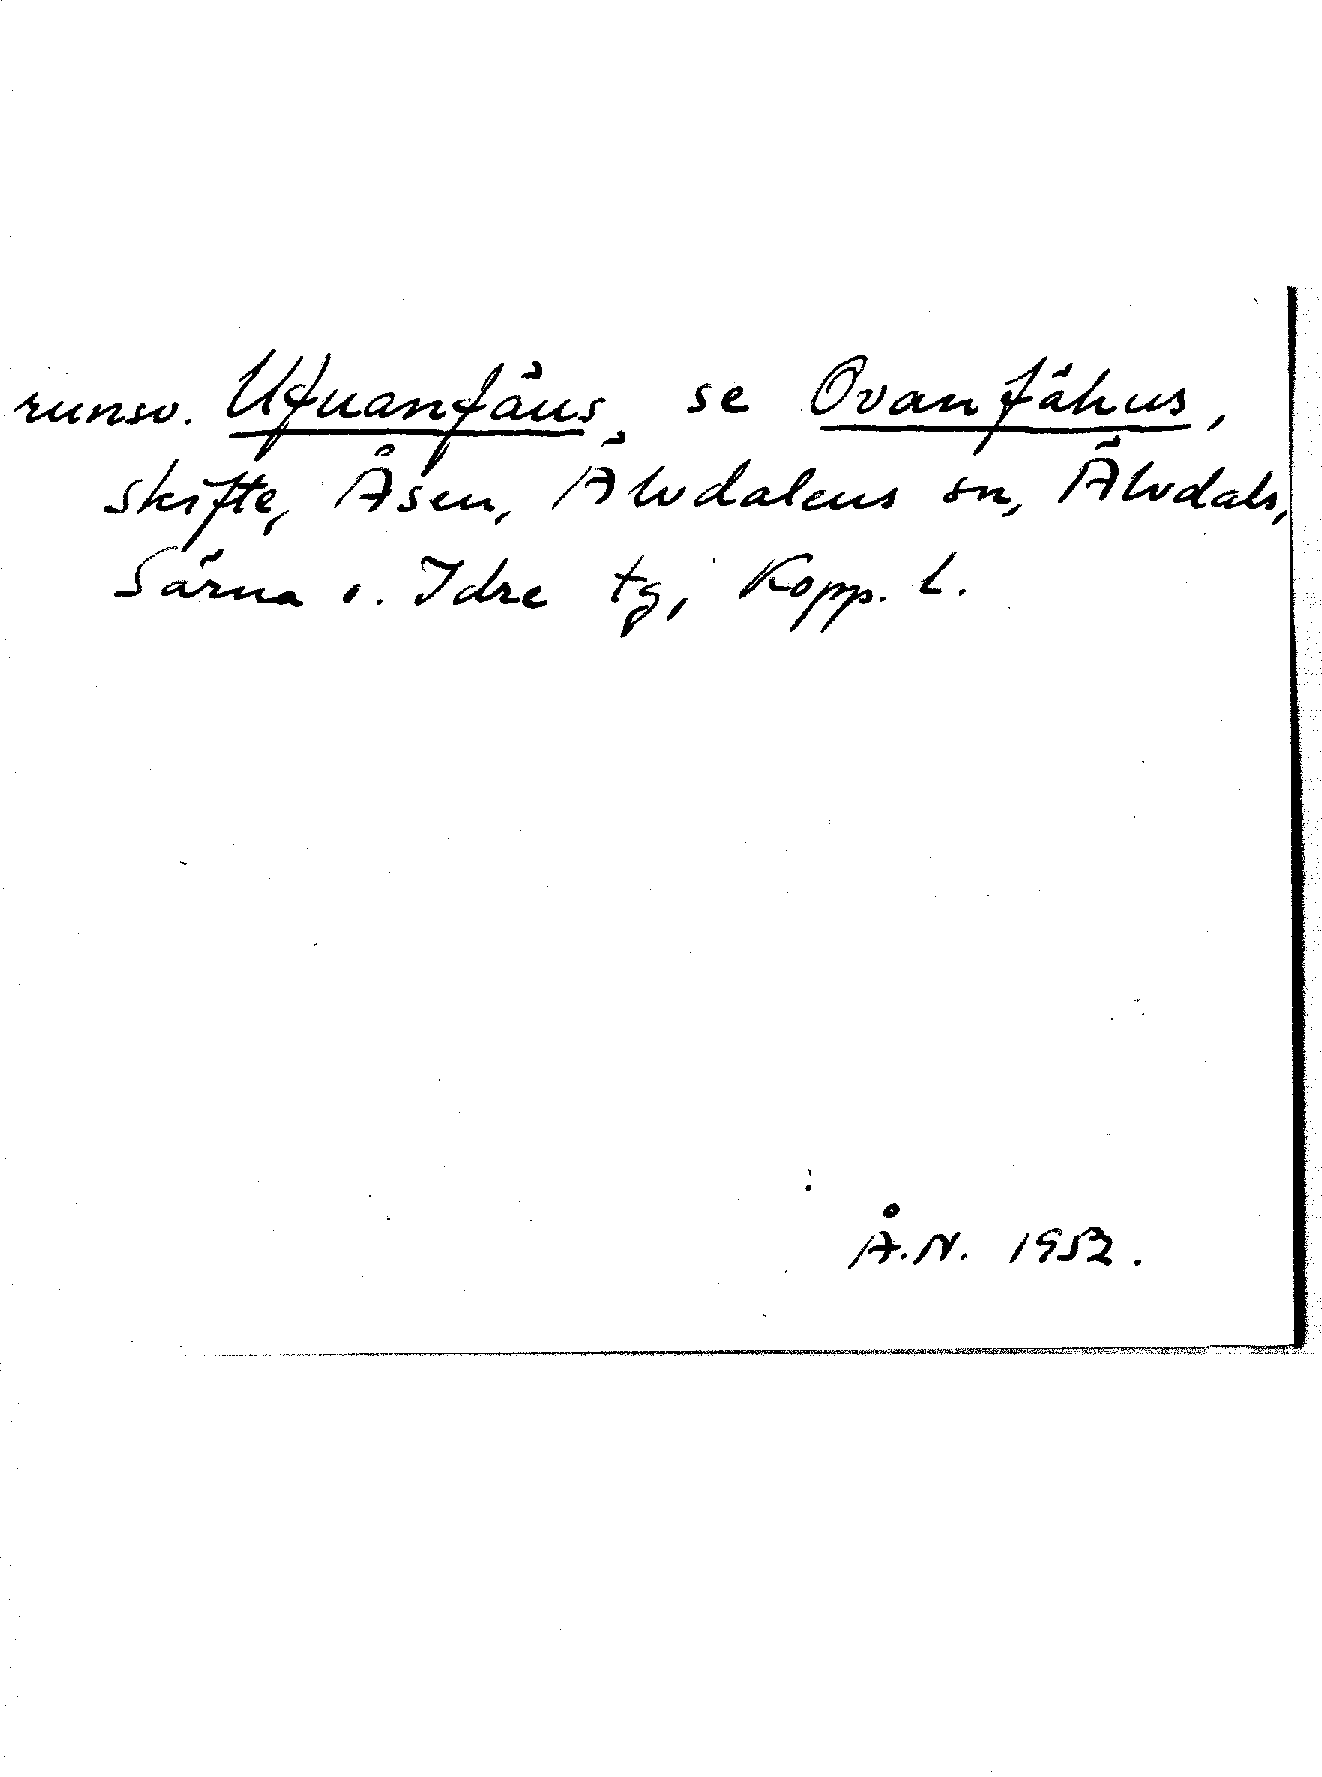 runsv. Ufuanfäus, se Ovanfähus,
skifte, Åsen, Älvdalens sn, Älvdals,
Särna o. Idre tg, Kopp. l.
Å.N. 1952.